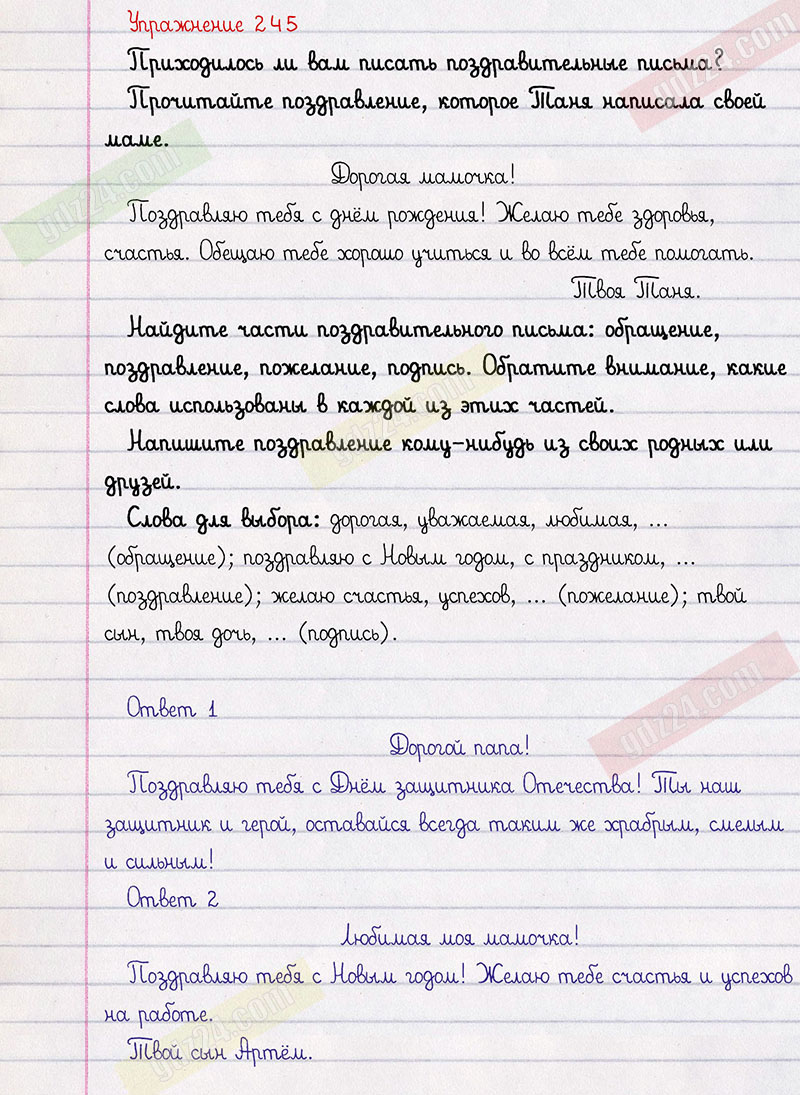 Упражнение 245
Приходилось ли вам писать поздравительные письма?
Прочитайте поздравление, которое Таня написала своей
маме.
Дорогая мамочка!
Поздравляю тебя с днём рождения! Желаю тебе здоровья,
счастья. Обещаю тебе хорошо учиться и во всём тебе помогать.
Твоя Таня.
Найдите части поздравительного письма: обращение,
поздравление, пожелание, подпись. Обратите внимание, какие
слова использованы в каждой из этих частей.
Напишите поздравление кому-нибудь из своих родных или
друзей.
Слова для выбора: дорогая, уважаемая, любимая, ...
(обращение); поздравляю с Новым годом, с праздником, ...
(поздравление); желаю счастья, успехов, ... (пожелание); твой
сын, твоя дочь, ... (подпись).
Ответ 1
Дорогой папа!
Поздравляю тебя с Днём защитника Отечества! Ты наш
защитник и герой, оставайся всегда таким же храбрым, смелым
и сильным!
Ответ 2
Любимая моя мамочка!
Поздравляю тебя с Новым годом! Желаю тебе счастья и успехов
на работе.
Твой сын Артём.
gdz24.com
gdz24.com
gdz24.com
gdz24.com
gdz24.com